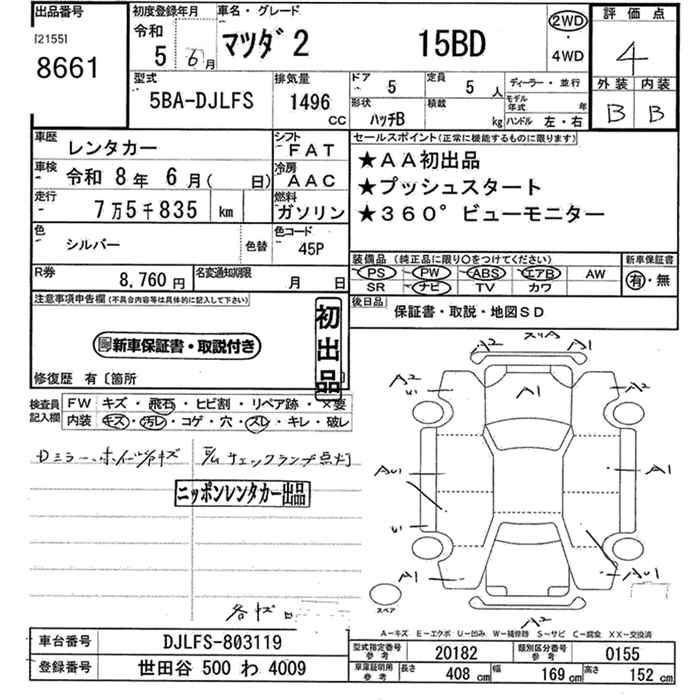 出品番号
[2155]
8661
初度登録年月
令和
5 6月
車名・グレード
マツダ2 15BD
2WD
4WD
評価点
4
外装 内装
B B
型式
5BA-DJLFS
排気量
1496
CC
ドア 5
定員 5 人
ディーラー・並行
形状
ハッチB
積載
kg
モデル年式 年
ハンドル 左・右
車歴
レンタカー
シフト
FAT
車検
令和 8年 6月( 日)
冷房
AAC
走行
7万5千835 km
燃料
ガソリン
色
シルバー
色替
色コード
45P
セールスポイント(正常に機能するものに限ります)
★AA初出品
★プッシュスタート
★360°ビューモニター
装備品(純正品に限り○をつけてください)
PS PW ABS エアB AW
SR ナビ TV カワ
新車保証書
有・無
R券
8,760円
名変通知期限
月 日
後日品
保証書・取説・地図SD
注意事項申告欄(不具合内容等は具体的に記入して下さい)
新車保証書・取説付き
初出品
修復歴 有〔箇所
検査員記入欄
FW キズ・飛石・ヒビ割・リペア跡・×要
内装 キズ・汚レ・コゲ・穴・スレ・キレ・破レ
Dミラー、ホイールキズ
チェックランプ点灯
ニッポンレンタカー出品
スリA
A2 A2
A2 A1 A2
AU1 A1
A1 AU1
A2
スペア
A-キズ E-エクボ U-凹み W-補修跡 S-サビ C-腐食 XX-交換済
車台番号
DJLFS-803119
登録番号
世田谷 500 わ 4009
型式指定番号
参考
20182
類別区分番号
参考
0155
車庫証明用
参考
長さ 408 cm
幅 169 cm
高さ 152 cm